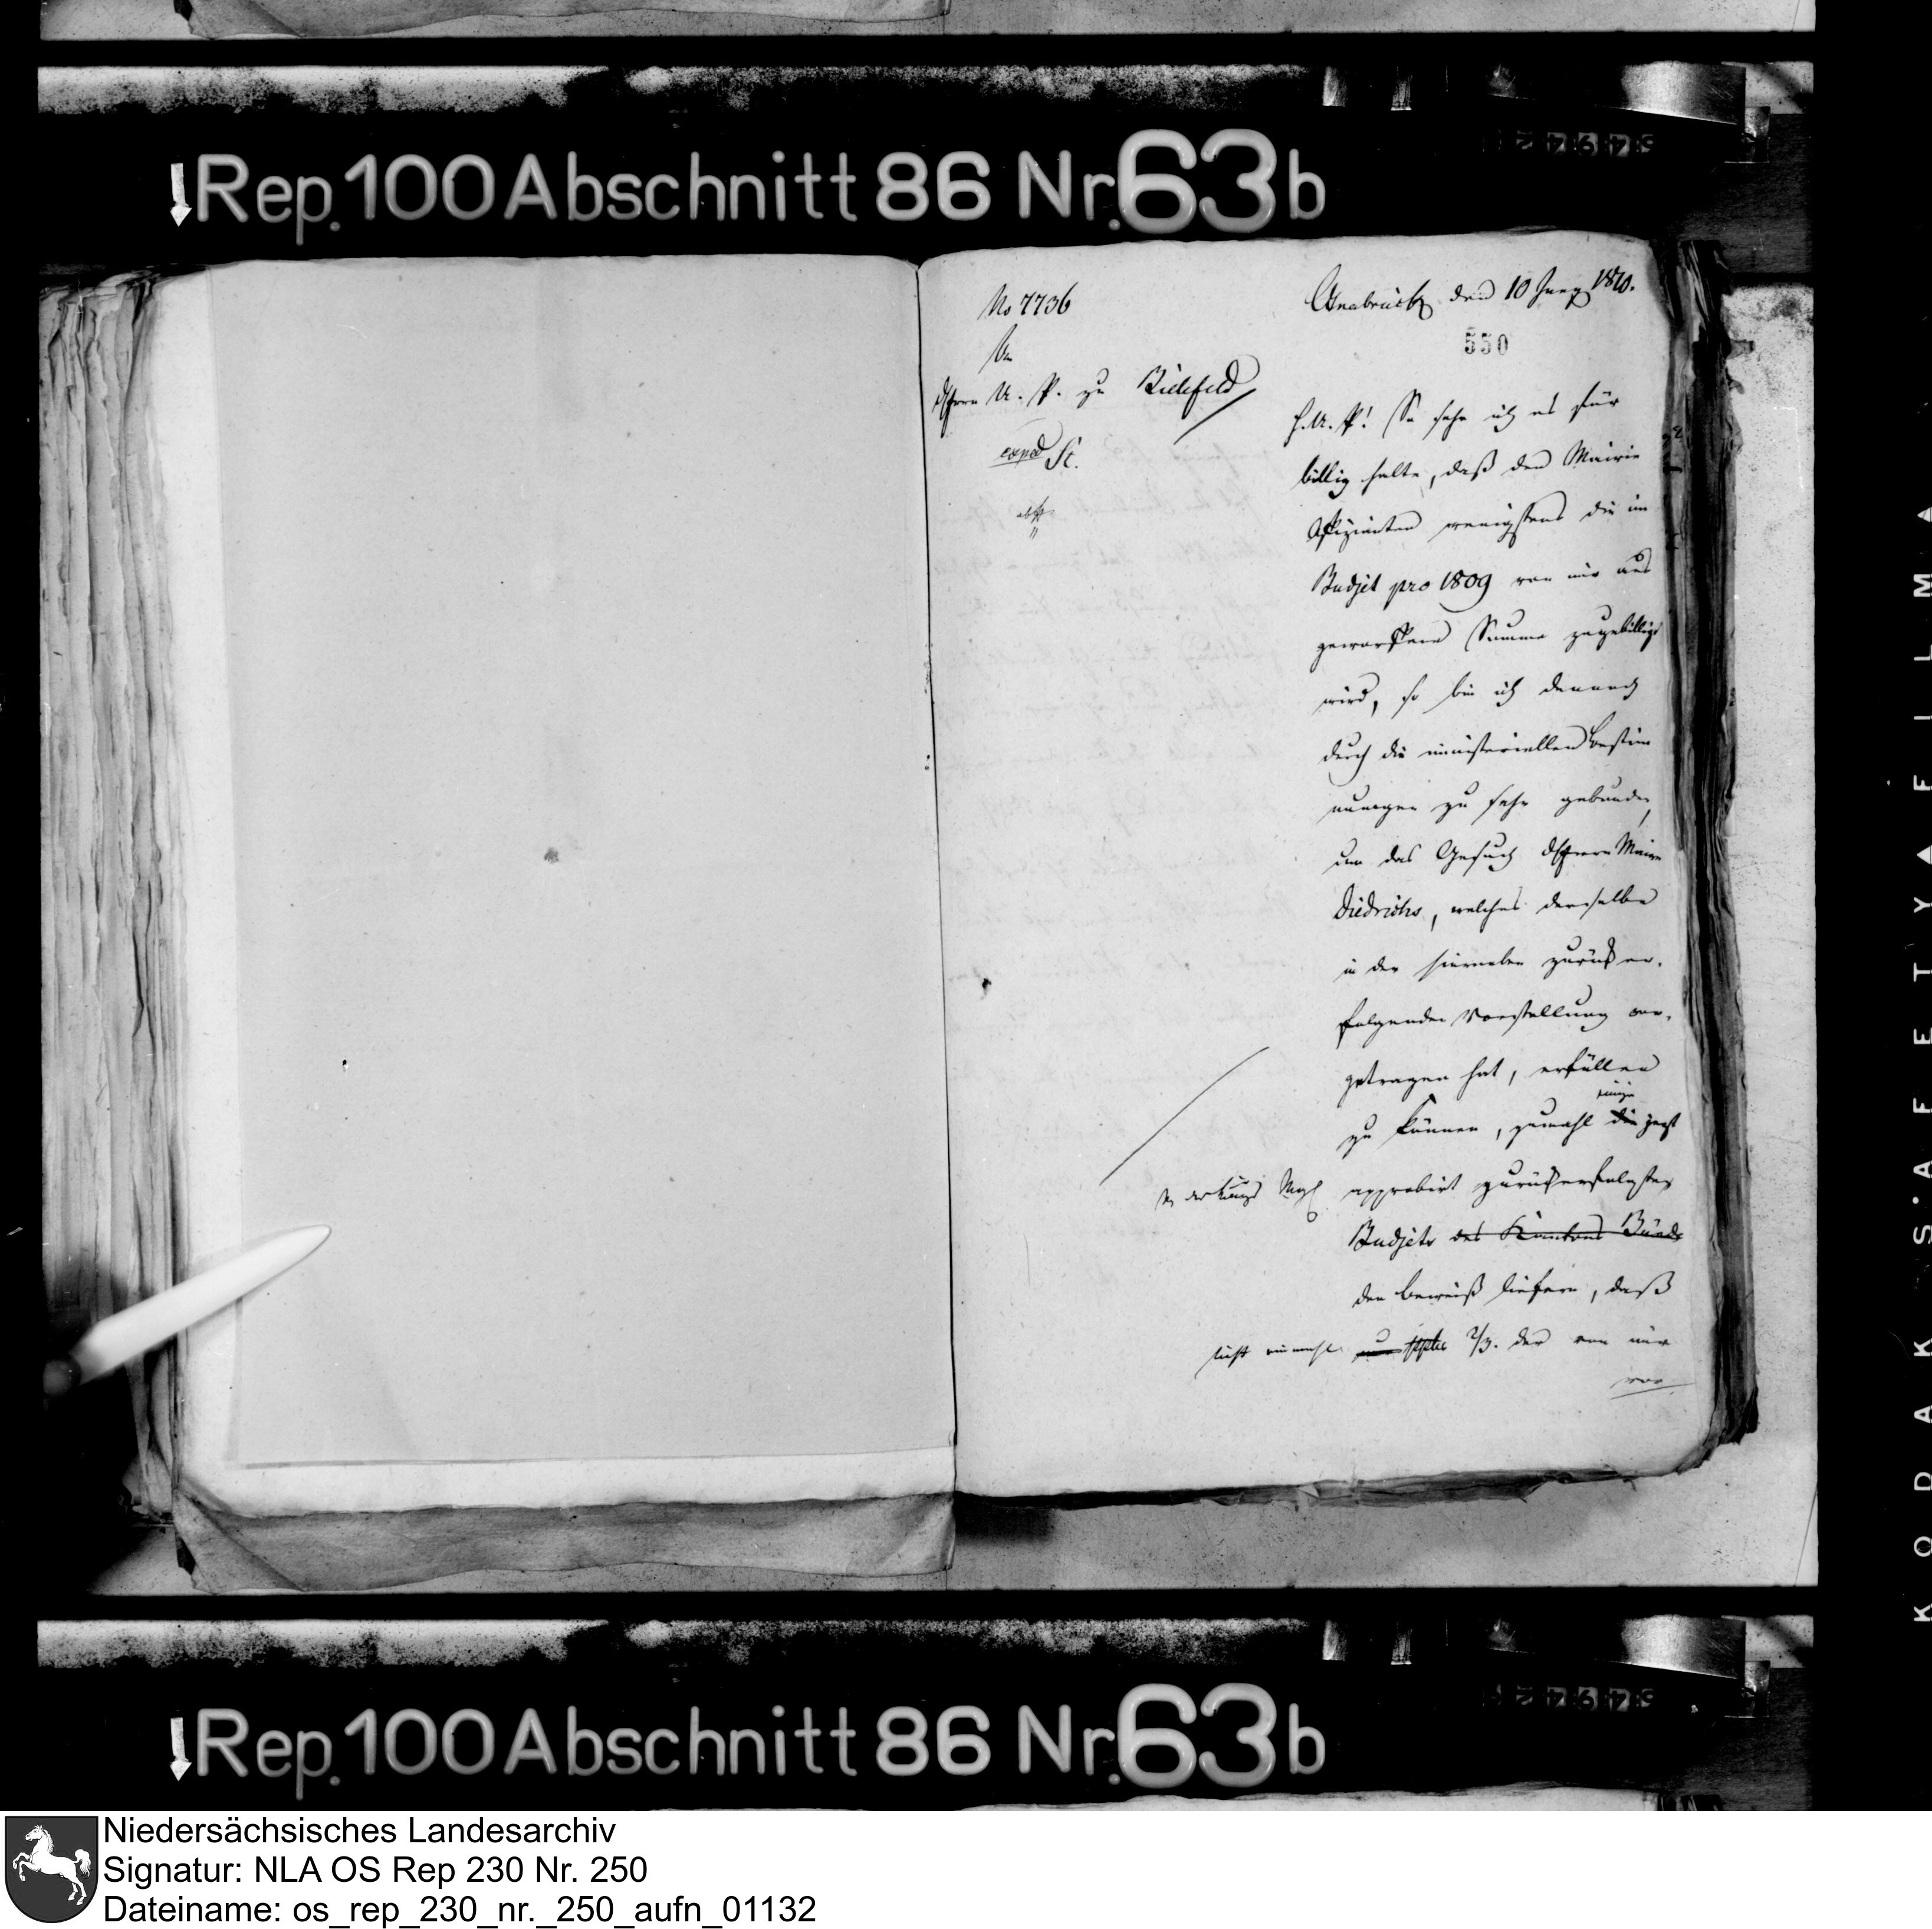 Rep. 100 Abschnitt 86 Nr. 63b
No 7736
An
d Herrn U. P. zu Bielefeld
exped St.
Osnabrück den 10 Juny 1810.
550
H. U. P.! So sehr ich es für
billig halte, daß den Mairie
Offizianten wenigstens die im
Budjet pro 1809 von mir aus
geworfene Summe zugebilligt
wird, so bin ich dennoch
durch die ministeriellen Bestim
mungen zu sehr gebunden,
um das Gesuch d Herrn Maire
Diedrichs, welches derselbe
in der hierneben zurück er-
folgenden Vorstellung vor-
getragen hat, erfüllen
zu können, zumahl die jetzt
einige
approbirt zurückerfolgten
Budjets des Kantons Bünde
den Beweiß liefern, daß
nicht einmahl nur 2/3. der von mir
vor
Rep. 100 Abschnitt 86 Nr. 63b
KODAK SAFETY FILM
Niedersächsisches Landesarchiv
Signatur: NLA OS Rep 230 Nr. 250
Dateiname: os_rep_230_nr._250_aufn_01132